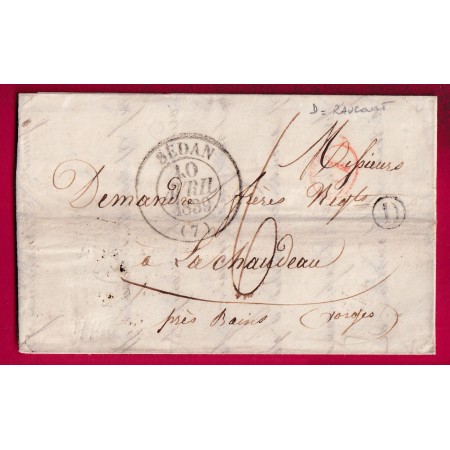 D = RAUCOURT
SEDAN
10
AVRIL
1839
(7)
Messieurs
Demandre frères Négts
D
6
à La Chaudeau
près Bains (Vosges)